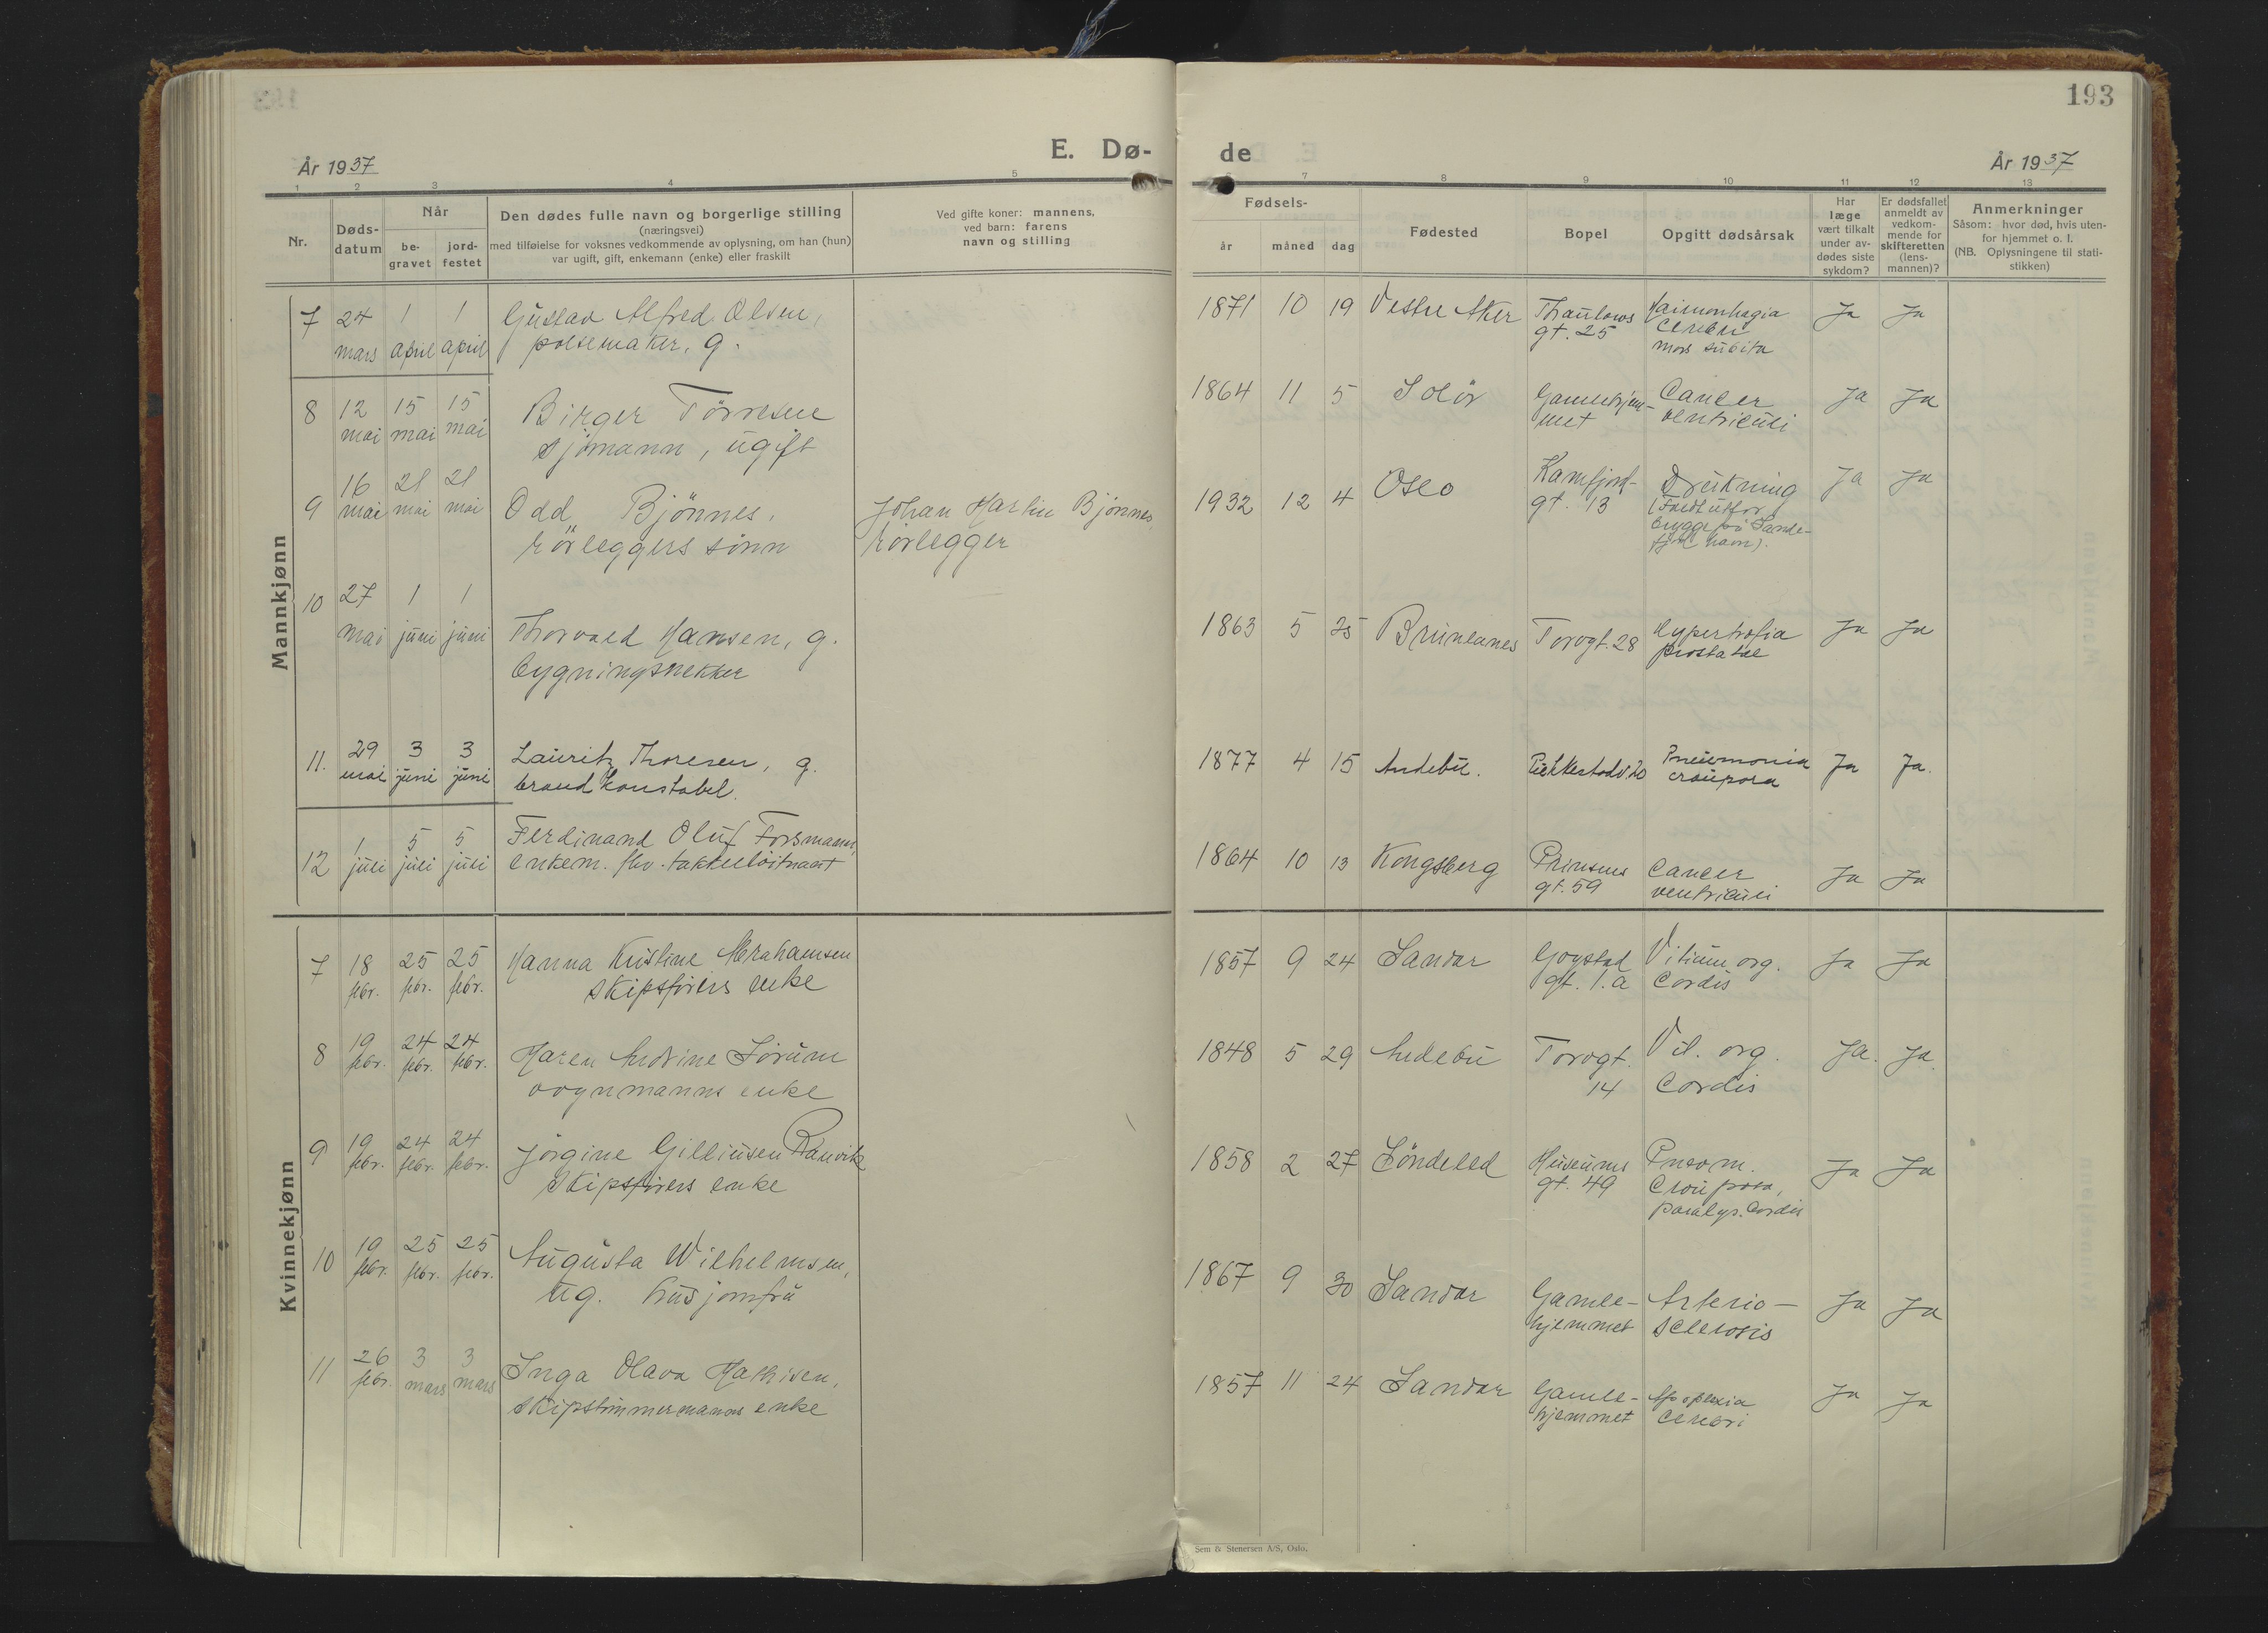 193
E. Dø- de
År 1937
År 1937
1 2 3 4 5 7 8 9 10 11 12 13
Nr.
Døds-
datum
Når
be-
gravet
jord-
festet
Den dødes fulle navn og borgerlige stilling
(næringsvei)
med tilføielse for voksnes vedkommende av oplysning, om han (hun)
var ugift, gift, enkemann (enke) eller fraskilt
Ved gifte koner: mannens,
ved barn: farens
navn og stilling
Fødsels-
år måned dag
Fødested
Bopel
Opgitt dødsårsak
Har
læge
vært tilkalt
under av-
dødes siste
sykdom?
Er dødsfallet
anmeldt av
vedkom-
mende for
skifteretten
(lens-
mannen)?
Anmerkninger
Såsom: hvor død, hvis uten-
for hjemmet o. l.
(NB. Oplysningene til stati-
stikken)
Mannkjønn
7 24 1 1 Gustav Alfred Olsen, 1871 10 19 Vestre Aker Thaulows Haimorrhagia Ja Ja
mars april april pølsemaker, g. gt. 25 cerebri
mors subita
8 12 15 15 Birger Tørresen 1864 11 5 Solør Gamlehjem- Cancer Ja Ja
mai mai mai sjømann, ugift met ventriculi
9 16 21 21 Odd Bjönnes, Johan Martin Bjönnes, 1932 12 4 Oslo Kamfjord- Drukning Ja Ja
mai mai mai rörleggers sönn rörlegger gt. 13 (Falt utfor
brygge på Sande-
fjord havn).
10 27 1 1 Thorvald Hansen, g. 1863 5 25 Brunlanes Torvgt. 28 Hypertrofia Ja Ja
mai juni juni bygningsnekker prostatae
11. 29 3 3 Lauritz Thoresen, g. 1877 4 15 Andebu. Pukkestadv. 20 Pneumonia Ja Ja.
mai juni juni brandkonstabel. crouposa
12 1 5 5 Ferdinand Oluf Forsmann, 1864 10 13 Kongsberg Prinsens Cancer Ja Ja
juli juli juli enkem. fhv. takkelløitnant gt. 59 ventriculi
Kvinnekjønn
7 18 25 25 Hanna Kristine Abrahamsen 1857 9 24 Sandar Gogstad Vitium org. Ja Ja
febr. febr. febr. skipsförers enke gt. 1.a Cordis
8 19 24 24 Maren Andrine Sörum 1848 5 29 Andebu Torvgt. Vit. org. Ja. Ja.
febr. febr. febr. vognmanns enke 14 Cordis
9 19 24 24 Jörgine Gilliusen Ranvik 1858 2 27 Söndeled Museums Pneom. Ja Ja
febr. febr. febr. skipsförers enke gt. 49 Crouposa,
paralys. Cordis
10 19 25 25 Augusta Wilhelmsen, 1867 9 30 Sandar Gamle- Arterio- Ja Ja
febr. febr. febr. ug. husjomfru hjemmet sclerosis
11 26 3 3 Inga Olava Mathisen, 1857 11 24 Sandar Gamle- Apoplexia Ja Ja
febr. mars mars skipstimmermanns enke hjemmet cerebri
Sem & Stenersen A/S, Oslo.